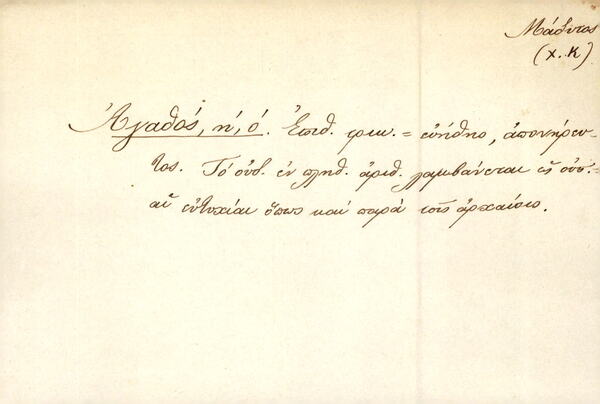 Μάδυτος
(Χ. Κ)
Ἀγαθός, ή, ό. Ἐπιθ. = εὐήθης, ἀπονήρευ-
τος. Τό οὐδ. ἐν πληθ. ἀριθ. λαμβάνεται ὡς οὐσ. =
αἱ εὐτυχίαι ὅπως καί παρά τοῖς ἀρχαίοις.